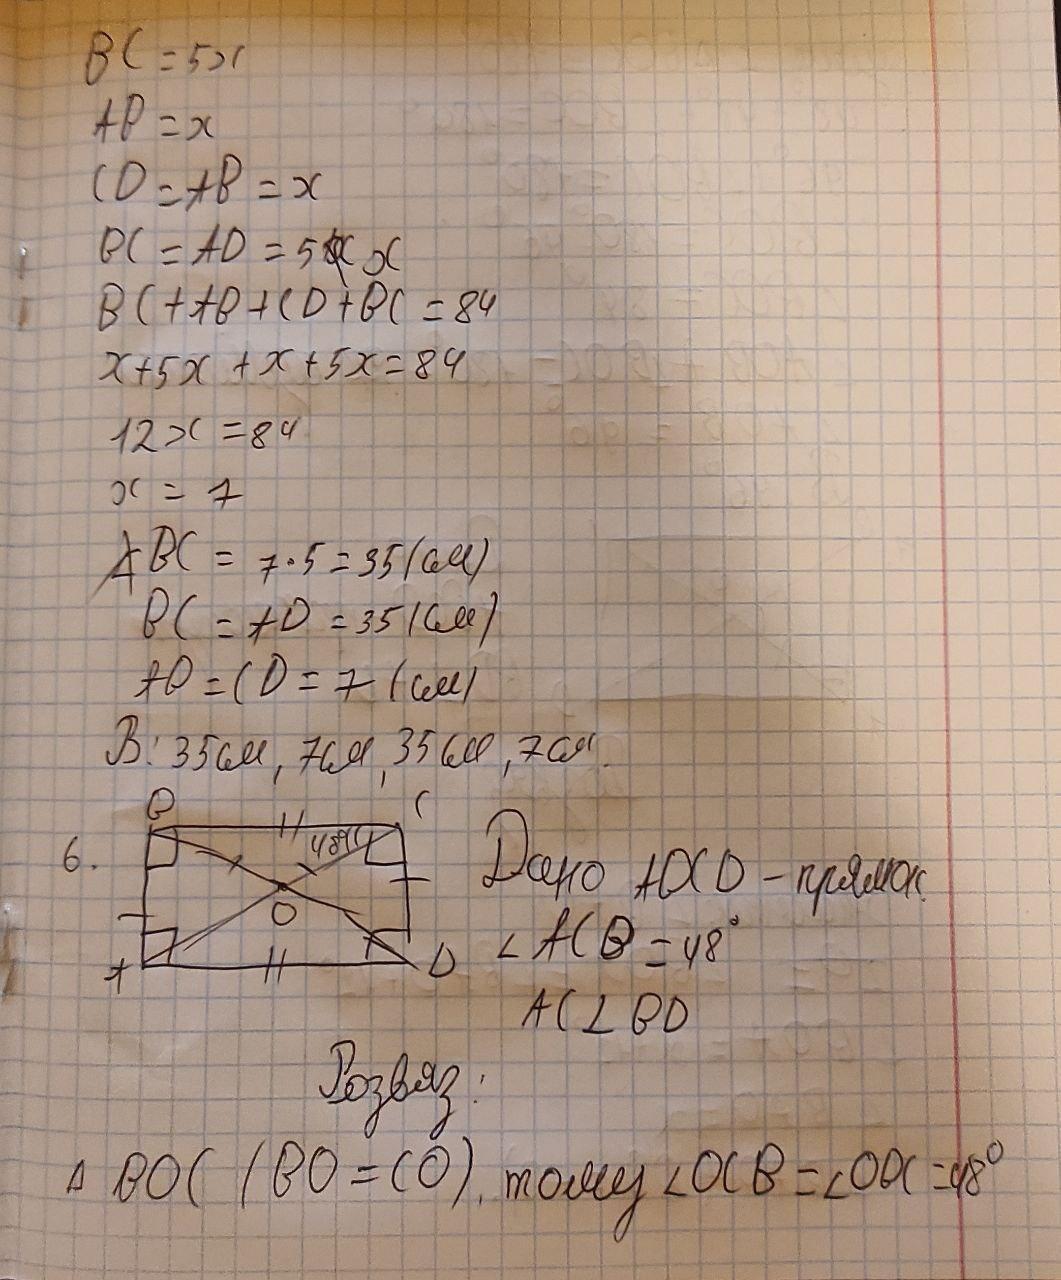 BC = 5x
AB = x
CD = AB = x
BC = AD = 5x
BC + AB + CD + BC = 84
x + 5x + x + 5x = 84
12x = 84
x = 7
BC = 7·5 = 35 (см)
BC = AD = 35 (см)
AB = CD = 7 (см)
В: 35 см, 7 см, 35 см, 7 см.
6.
B C
48°
O
A D
Дано ABCD - прямок.
∠ACB = 48°
AC ∠ BD
Розвяз:
Δ BOC (BO = CO), тому ∠OCB = ∠OBC = 48°